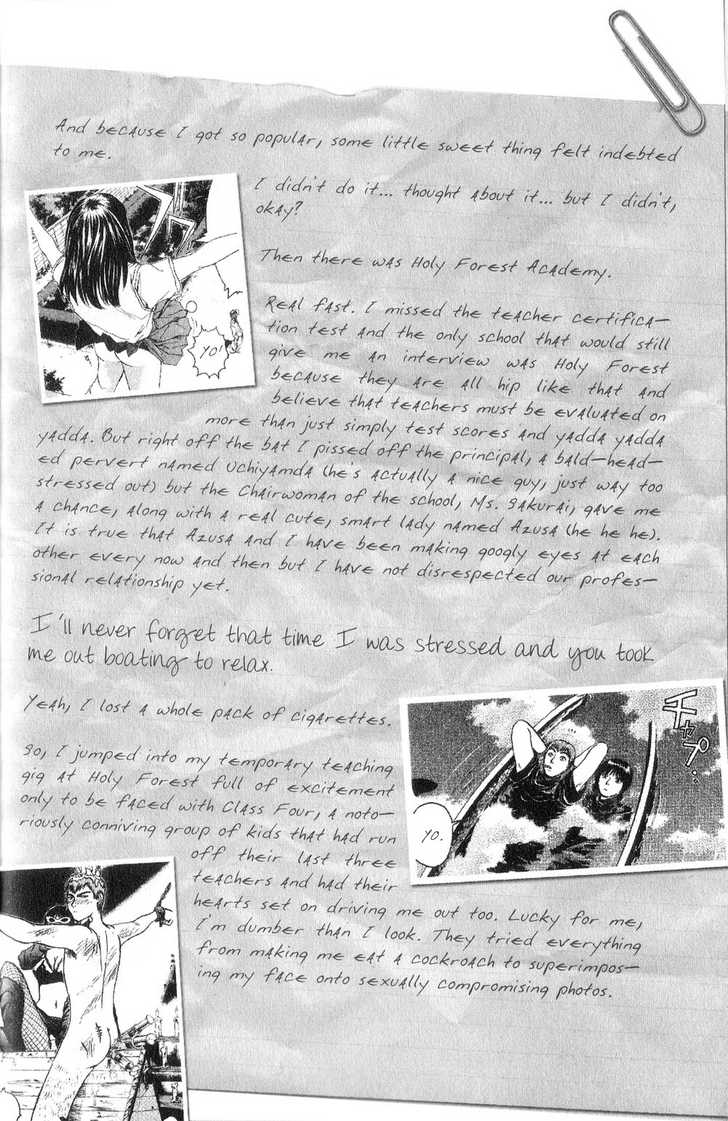 And because I got so popular, some little sweet thing felt indebted
to me.
I didn't do it... thought about it... but I didn't,
okay?
Then there was Holy Forest Academy.
Real fast. I missed the teacher certifica-
tion test and the only school that would still
give me an interview was Holy Forest
because they are all hip like that and
believe that teachers must be evaluated on
more than just simply test scores and yadda yadda
yadda. But right off the bat I pissed off the principal, a bald-head-
ed pervert named Uchiyamda (he's actually a nice guy, just way too
stressed out) but the Chairwoman of the school, Ms. Sakurai, gave me
a chance, along with a real cute, smart lady named Azusa (he he he).
It is true that Azusa and I have been making googly eyes at each
other every now and then but I have not disrespected our profes-
sional relationship yet.
YO!
I'll never forget that time I was stressed and you took
me out boating to relax.
Yeah, I lost a whole pack of cigarettes.
So, I jumped into my temporary teaching
gig at Holy Forest full of excitement
only to be faced with Class Four, a noto-
riously conniving group of kids that had run
off their last three
teachers and had their
hearts set on driving me out too. Lucky for me,
I'm dumber than I look. They tried everything
from making me eat a cockroach to superimpos-
ing my face onto sexually compromising photos.
チャプ...
YO.